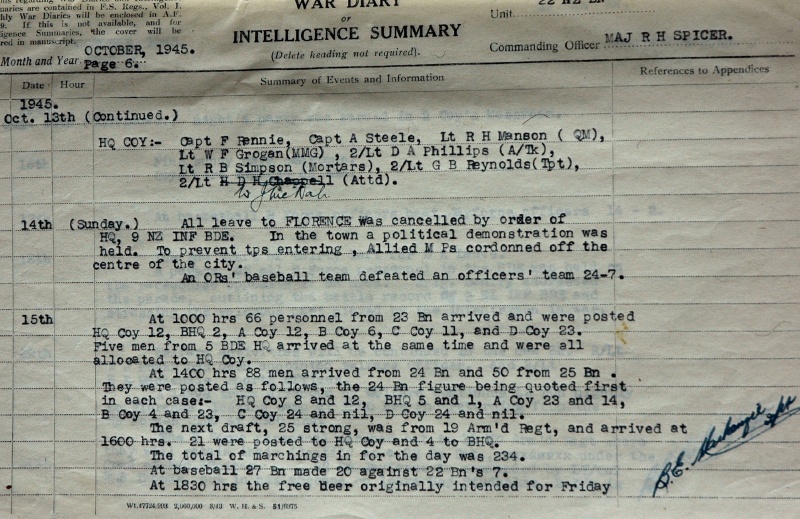 naries are contained in F.S. Regs., Vol. I.
hly War Diaries will be enclosed in A.F.
9. If this is not available, and for
ligence Summaries, the cover will be
red in manuscript.
WAR DIARY
or
INTELLIGENCE SUMMARY
(Delete heading not required).
Unit 22 NZ BN
Commanding Officer MAJ R H SPICER.
Month and Year OCTOBER, 1945.
Page 6.
Date Hour Summary of Events and Information References to Appendices
1945.
Oct. 13th (Continued.)
HQ COY:- Capt F Rennie, Capt A Steele, Lt R H Manson ( QM),
Lt W F Grogan(MMG) , 2/Lt D A Phillips (A/Tk),
Lt R B Simpson (Mortars), 2/Lt G B Reynolds(Tpt),
2/Lt H D H Chappell (Attd).
14th (Sunday.) All leave to FLORENCE was cancelled by order of
HQ, 9 NZ INF BDE. In the town a political demonstration was
held. To prevent tps entering , Allied M Ps cordonned off the
centre of the city.
An ORs' baseball team defeated an officers' team 24-7.
15th At 1000 hrs 66 personnel from 23 Bn arrived and were posted
HQ Coy 12, BHQ 2, A Coy 12, B Coy 6, C Coy 11, and D Coy 23.
Five men from 5 BDE HQ arrived at the same time and were all
allocated to HQ Coy.
At 1400 hrs 88 men arrived from 24 Bn and 50 from 25 Bn .
They were posted as follows, the 24 Bn figure being quoted first
in each case:- HQ Coy 8 and 12, BHQ 5 and 1, A Coy 23 and 14,
B Coy 4 and 23, C Coy 24 and nil, D Coy 24 and nil.
The next draft, 25 strong, was from 19 Arm'd Regt, and arrived at
1600 hrs. 21 were posted to HQ Coy and 4 to BHQ.
The total of marchings in for the day was 234.
At baseball 27 Bn made 20 against 22 Bn's 7.
At 1830 hrs the free beer originally intended for Friday
Wt.47724/993 2,000,000 3/43 W. H. & S. 51/6375